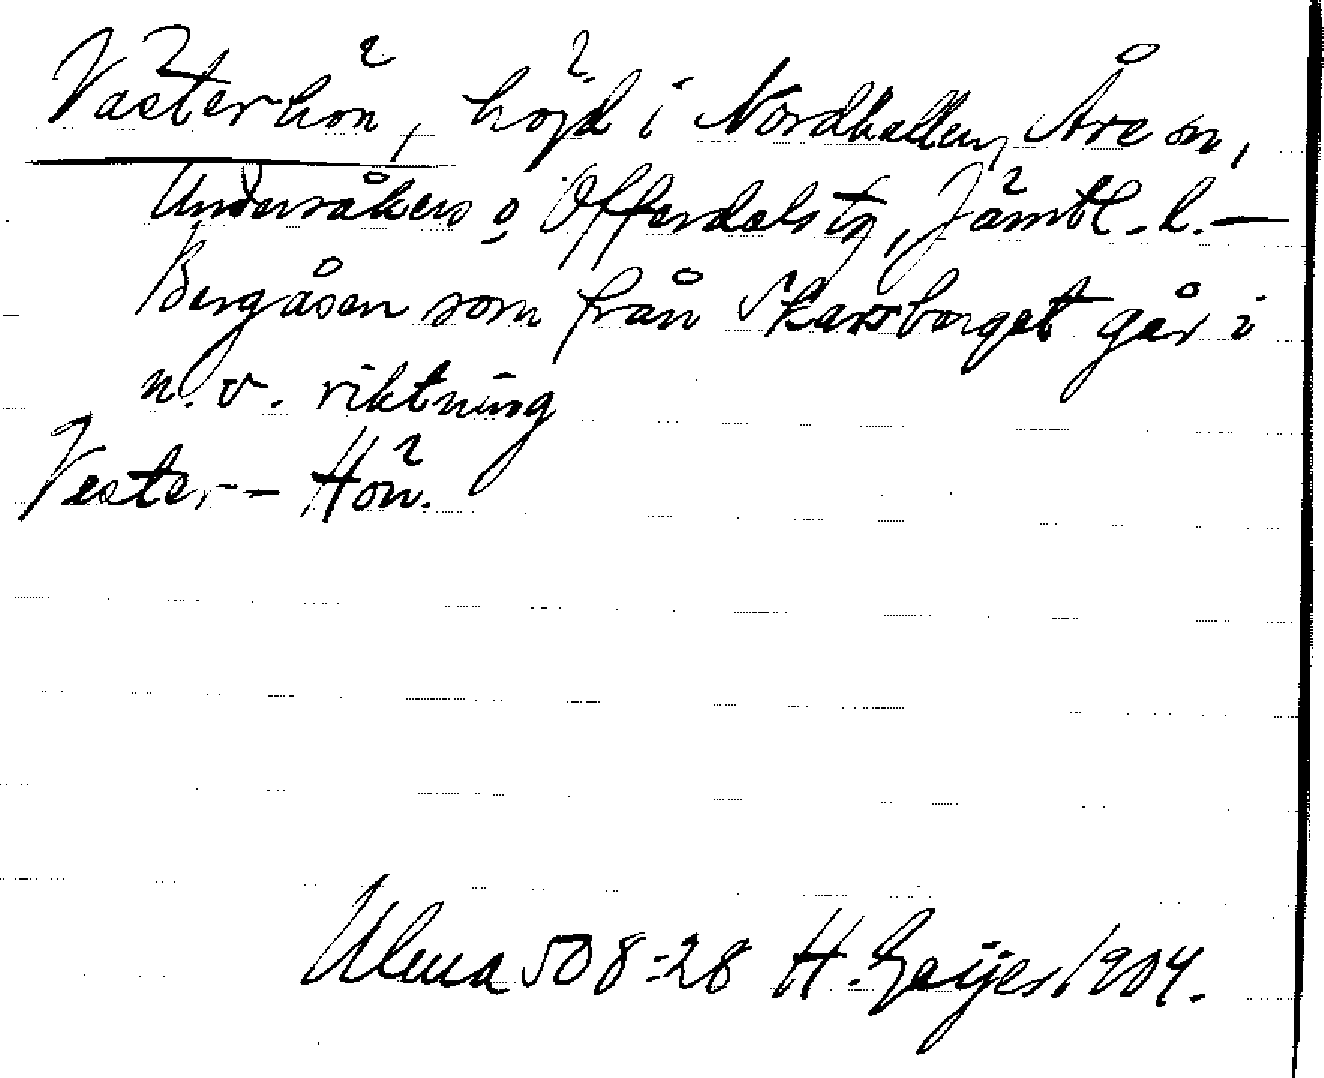 Västerhön, höjd i Nordhallen, Åre sn,
Undersåkers o Offerdals tg, Jämtl. l. —
Bergåsen som från Skarsberget går i
n.v. riktning
Vester-Hön.
Ulma 508:28 H. Geijer 1904.